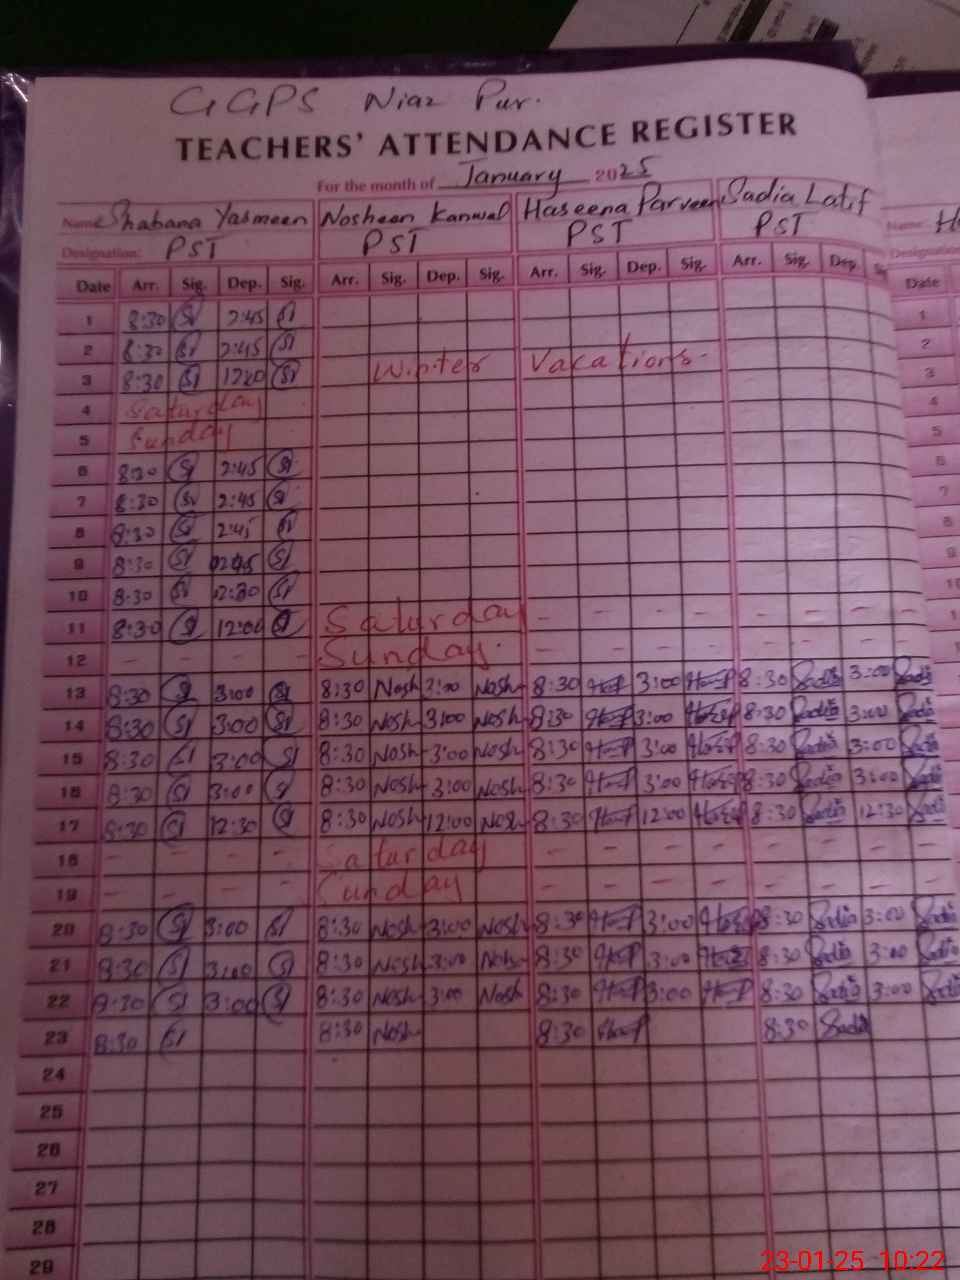 GGPS Niaz Pur.
TEACHERS' ATTENDANCE REGISTER
For the month of January 2025
Name: Shabana Yasmeen Nosheen Kanwal Haseena Parveen Sadia Latif Name:
Designation: PST PST PST PST Designation
Date Arr. Sig. Dep. Sig. Arr. Sig. Dep. Sig. Arr. Sig. Dep. Sig. Arr. Sig. Dep. Date
1 8:30 2:45 1
2 8:30 2:45 2
3 8:30 Winter Vacations. 3
4 Saturday 4
5 Sunday 5
6 8:30 2:45 6
7 8:30 2:45 7
8 8:30 2:45 8
9 8:30 9
10 8:30 10
11 8:30 12:00 Saturday - - - - - - - -
12 - - - - Sunday. - - - - - - - -
13 8:30 3:00 8:30 Nosh 3:00 Nosh 8:30 3:00 8:30 Sadia 3:00 Sadia
14 8:30 3:00 8:30 Nosh 3:00 Nosh 8:30 3:00 8:30 Sadia 3:00 Sadia
15 8:30 3:00 8:30 Nosh 3:00 Nosh 8:30 3:00 8:30 Sadia 3:00 Sadia
16 8:30 3:00 8:30 Nosh 3:00 Nosh 8:30 3:00 8:30 Sadia 3:00 Sadia
17 8:30 12:30 8:30 Nosh 12:00 Nosh 8:30 12:00 8:30 Sadia 12:30 Sadia
18 - - - - Saturday - - - - - - - -
19 - - - - Sunday - - - - - - - -
20 8:30 3:00 8:30 Nosh 3:00 Nosh 8:30 3:00 8:30 Sadia 3:00 Sadia
21 8:30 3:00 8:30 Nosh 3:00 Nosh 8:30 3:00 8:30 Sadia 3:00 Sadia
22 8:30 3:00 8:30 Nosh 3:00 Nosh 8:30 3:00 8:30 Sadia 3:00 Sadia
23 8:30 8:30 Nosh 8:30 8:30 Sadia
24
25
26
27
28
29
23-01-25 10:22